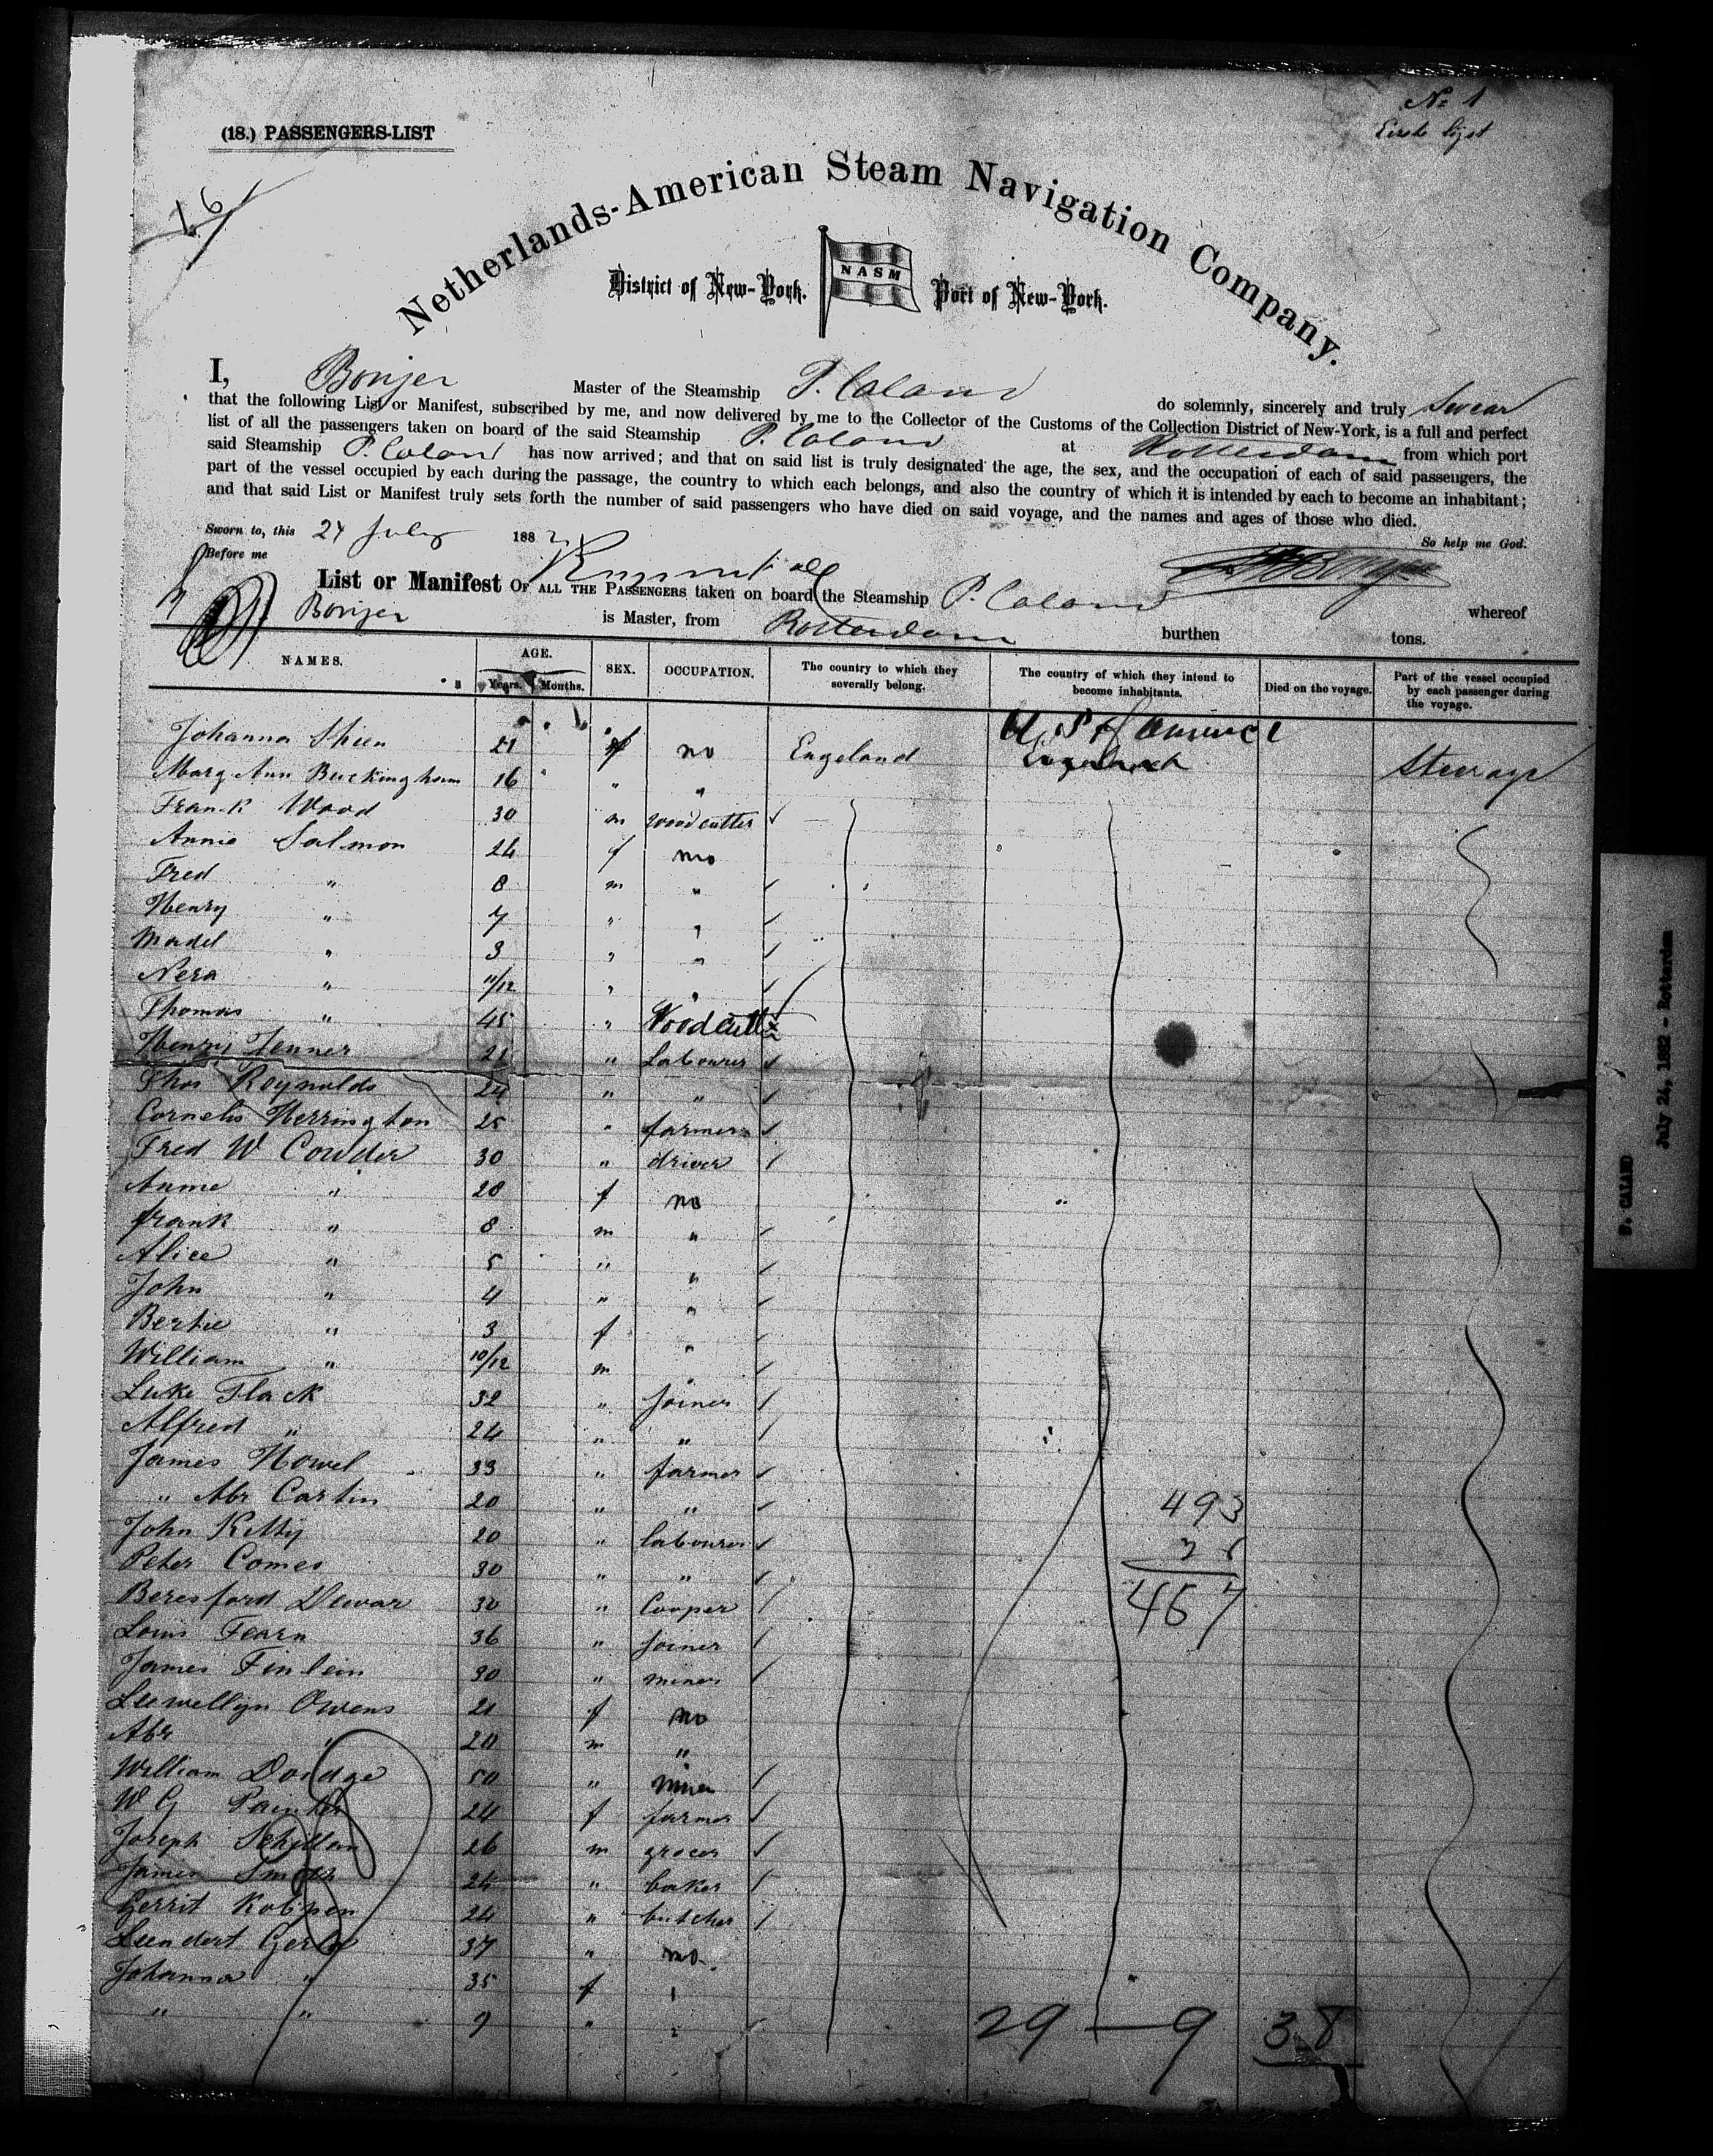 No 1
Eerste lijst
(18.) PASSENGERS-LIST
16
Netherlands-American Steam Navigation Company.
District of New-York. NASM Port of New-York.
I, Bonjer Master of the Steamship P. Caland do solemnly, sincerely and truly swear
that the following List or Manifest, subscribed by me, and now delivered by me to the Collector of the Customs of the Collection District of New-York, is a full and perfect
list of all the passengers taken on board of the said Steamship P. Caland at Rotterdam from which port
said Steamship P. Caland has now arrived; and that on said list is truly designated the age, the sex, and the occupation of each of said passengers, the
part of the vessel occupied by each during the passage, the country to which each belongs, and also the country of which it is intended by each to become an inhabitant;
and that said List or Manifest truly sets forth the number of said passengers who have died on said voyage, and the names and ages of those who died.
Sworn to, this 24 July 1882 So help me God.
Before me
List or Manifest OF ALL THE PASSENGERS taken on board the Steamship P. Caland whereof
Bonjer is Master, from Rotterdam burthen tons.
NAMES. AGE. Years. Months. SEX. OCCUPATION. The country to which they severally belong. The country of which they intend to become inhabitants. Died on the voyage. Part of the vessel occupied by each passenger during the voyage.
Johanna Shien 21 f no Engeland U S of America Steerage
Mary Ann Buckingham 16 " "
Frank Wood 30 m woodcutter
Annie Salmon 24 f no
Fred " 8 m "
Henry " 7 " "
Madel " 3 " "
Nera " 11/12 " "
Thomas " 45 " Woodcutter
Henry Fenner 21 " Labourer
Thos Reynolds 24 " "
Cornelis Herrington 25 " farmer
Fred W Cowder 30 " driver
Annie " 28 f no
frank " 8 m "
Alice " 5 " "
John " 4 " "
Bertie " 3 f "
William " 10/12 m "
Luke Flack 32 " joiner
Alfred " 24 " "
James Howel 33 " farmer
" Abr Cartin 20 " " 493
John Kelly 20 " labourer
Peter Comes 30 " "
Beresford Dewar 30 " Cooper 467
Louis Fearn 36 " joiner
James Finlein 30 " miner
Leewellyn Owens 21 f no
Abr " 20 m "
William Doidge 50 " miner
W G Painter 24 f farmer
Joseph Schillan 26 m grocer
James Smith 24 " baker
Gerrit Kobpen 24 " butcher
Leendert Gerle 37 " no.
Johanna " 35 f "
" " 9 " " 29 — 9 38
P. CALAND
July 24, 1882 - Rotterdam